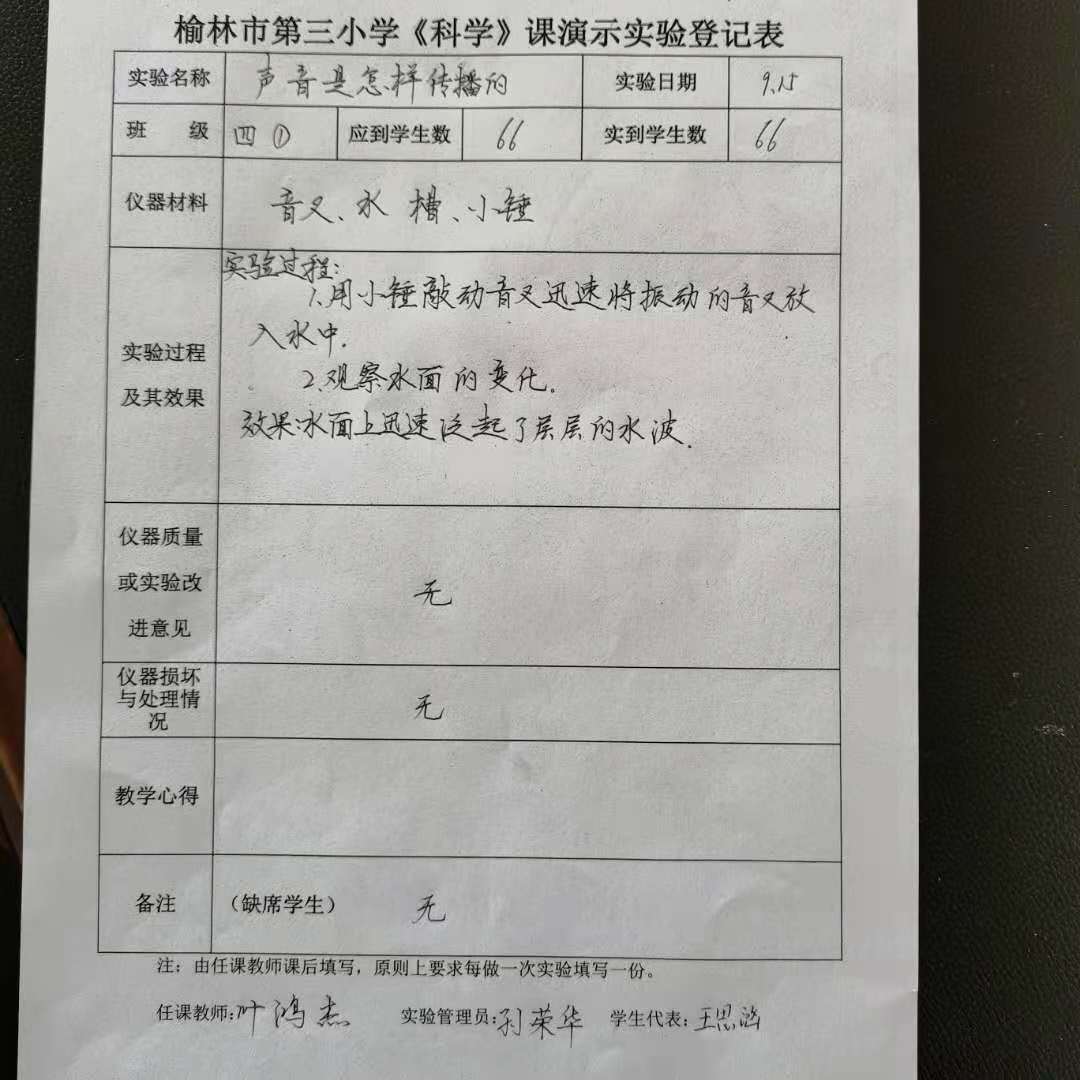 榆林市第三小学《科学》课演示实验登记表
实验名称 声音是怎样传播的 实验日期 9.15
班 级 四① 应到学生数 66 实到学生数 66
仪器材料 音叉、水槽、小锤
实验过程:
1.用小锤敲动音叉迅速将振动的音叉放
入水中.
实验过程
2.观察水面的变化.
及其效果
效果:水面上迅速泛起了层层的水波.
仪器质量
或实验改
无
进意见
仪器损坏
与处理情
况
无
教学心得
备注 (缺席学生) 无
注：由任课教师课后填写，原则上要求每做一次实验填写一份。
任课教师:叶鸿杰 实验管理员:孙荣华 学生代表:王思